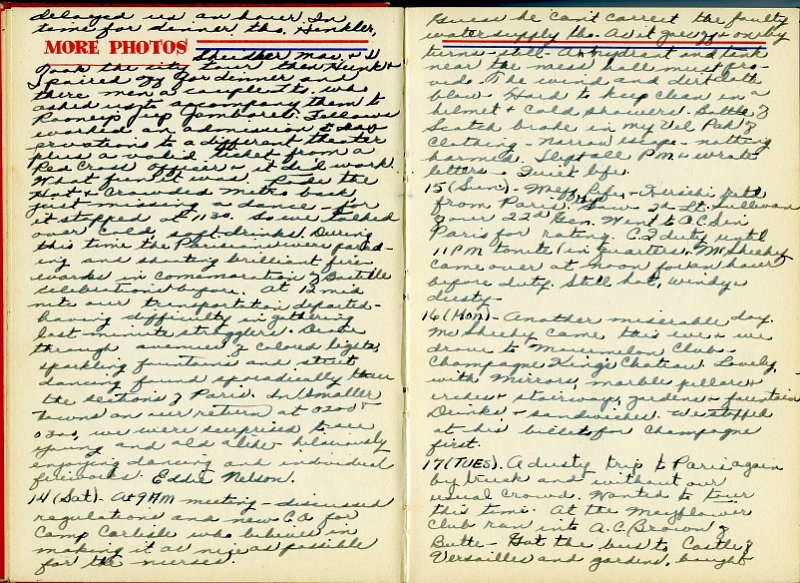 delayed us an hour. In
time for dinner, tho. Hinkler,
MORE PHOTOS
Mac, & I
took the city tour then
I paired off for dinner and
there men a couple Lts. who
asked us to accompany them to
Rooney's Jeep Jamboree. Fellows
worked on admission &
to a different theater
plus a valid ticket from a
Red Cross officer & it did work.
What fun it was. Late the
Hot & Crowded Metro back
just missing a dance - for
it stopped at 1130. So we talked
over cold soft drinks. During
this time the Parisians were
ing and shooting brilliant fire
works in commoration of Bastille
celebration before. At 12 mid
nite our transportation departed -
having difficulty in gathering
last minute strugglers. Drove
through avenues of colored lights,
sparkling fountains and street
dancing found sporadically thru
the sections of Paris. In smaller
towns on our return at 0200 -
0300, we were surprised to see
young and old alike hilariously
enjoying dancing and individual
fireworks. Eddie Nelson.
14 (Sat) - At 9 AM meeting - discussed
regulations and new C.O. for
Camp Carlisle who believes in
making it as nice as possible
for the nurses.
Guess he can't correct the faulty
water supply tho. As it goes off & on by
turns still. A hydrant and tank
near the mess hall must pro-
vide. The wind and dirt doth
blow. Hard to keep clean in a
helmet & cold showers. Bottle of
Scotch broke in my Val Pak of
clothing - narrow escape - nothing
harmed. Slept all P.M. & wrote
letters. Quiet
15 (Sun) -
from Paris. Lt. Sullivan
of our 22d Gen. Went to
Paris for rating. C.Q. duty until
11 PM tonite (in quarters). McSheehy
came over at noon for an hour
before duty. Still hot, windy &
dusty.
16 (Mon) - Another miserable day.
McSheehy came this eve & we
drove to Mourmelon Club -
Champagne King's Chateau. Lovely,
with mirrors, marble pillars &
arches & stairways, gardens & fountain
Drinks & sandwiches. We stopped
at his billets for champagne
first.
17 (TUES). A dusty trip to Paris again
by truck and without our
usual crowd. Wanted to tour
this time. At the Mayflower
Club ran into A.C. Brown of
Butte - Got the bus to Castle of
Versailles and gardens, bought